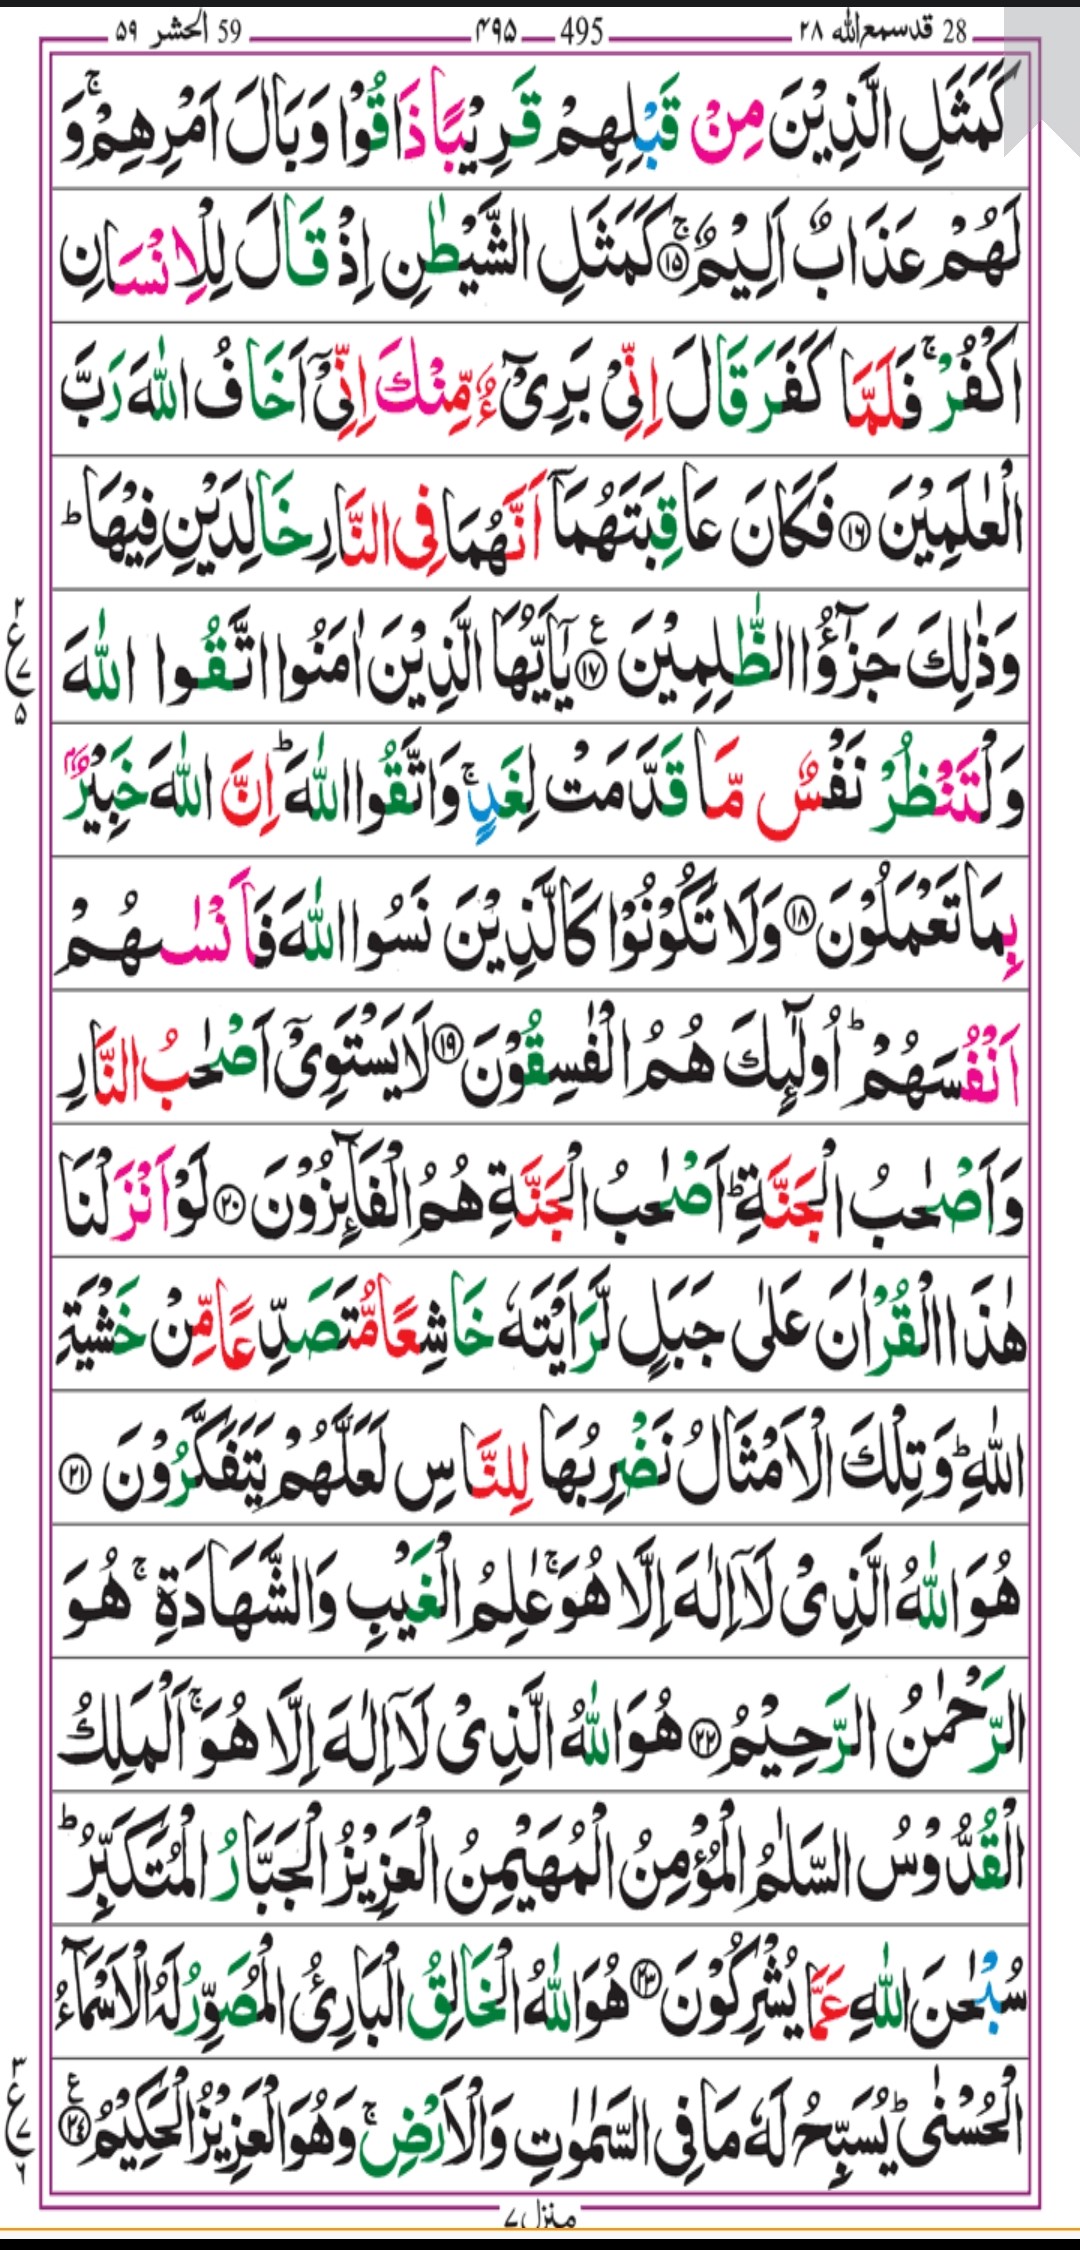 28 قدسمع الله ٢٨ 495 ۴۹۵ 59 الحشر ۵۹
كَمَثَلِ الَّذِيْنَ مِنْ قَبْلِهِمْ قَرِيْبًا ذَاقُوْا وَبَالَ اَمْرِهِمْ ۚ وَ
لَهُمْ عَذَابٌ اَلِيْمٌ ۚ ﴿۱۵﴾ كَمَثَلِ الشَّيْطٰنِ اِذْ قَالَ لِلْاِنْسَانِ
اكْفُرْ ۚ فَلَمَّا كَفَرَ قَالَ اِنِّىْ بَرِىْٓءٌ مِّنْكَ اِنِّىْٓ اَخَافُ اللّٰهَ رَبَّ
الْعٰلَمِيْنَ ﴿۱۶﴾ فَكَانَ عَاقِبَتَهُمَآ اَنَّهُمَا فِى النَّارِ خَالِدَيْنِ فِيْهَا ؕ
وَذٰلِكَ جَزٰٓؤُا الظّٰلِمِيْنَ ﴿۱۷﴾ ع يٰٓاَيُّهَا الَّذِيْنَ اٰمَنُوا اتَّقُوا اللّٰهَ
٢ ع ٧ ۵
وَلْتَنْظُرْ نَفْسٌ مَّا قَدَّمَتْ لِغَدٍ ۚ وَاتَّقُوا اللّٰهَ ؕ اِنَّ اللّٰهَ خَبِيْرٌۢ
بِمَا تَعْمَلُوْنَ ﴿۱۸﴾ وَلَا تَكُوْنُوْا كَالَّذِيْنَ نَسُوا اللّٰهَ فَاَنْسٰىهُمْ
اَنْفُسَهُمْ ؕ اُولٰٓئِكَ هُمُ الْفٰسِقُوْنَ ﴿۱۹﴾ لَا يَسْتَوِىْٓ اَصْحٰبُ النَّارِ
وَاَصْحٰبُ الْجَنَّةِ ؕ اَصْحٰبُ الْجَنَّةِ هُمُ الْفَآئِزُوْنَ ﴿۲۰﴾ لَوْ اَنْزَلْنَا
هٰذَا الْقُرْاٰنَ عَلٰى جَبَلٍ لَّرَاَيْتَهٗ خَاشِعًا مُّتَصَدِّعًا مِّنْ خَشْيَةِ
اللّٰهِ ؕ وَتِلْكَ الْاَمْثَالُ نَضْرِبُهَا لِلنَّاسِ لَعَلَّهُمْ يَتَفَكَّرُوْنَ ﴿۲۱﴾
هُوَ اللّٰهُ الَّذِىْ لَآ اِلٰهَ اِلَّا هُوَ ۚ عٰلِمُ الْغَيْبِ وَالشَّهَادَةِ ۚ هُوَ
الرَّحْمٰنُ الرَّحِيْمُ ﴿۲۲﴾ هُوَ اللّٰهُ الَّذِىْ لَآ اِلٰهَ اِلَّا هُوَ ۚ اَلْمَلِكُ
الْقُدُّوْسُ السَّلٰمُ الْمُؤْمِنُ الْمُهَيْمِنُ الْعَزِيْزُ الْجَبَّارُ الْمُتَكَبِّرُ ؕ
سُبْحٰنَ اللّٰهِ عَمَّا يُشْرِكُوْنَ ﴿۲۳﴾ هُوَ اللّٰهُ الْخَالِقُ الْبَارِئُ الْمُصَوِّرُ لَهُ الْاَسْمَآءُ
الْحُسْنٰى ؕ يُسَبِّحُ لَهٗ مَا فِى السَّمٰوٰتِ وَالْاَرْضِ ۚ وَهُوَ الْعَزِيْزُ الْحَكِيْمُ ﴿۲۴﴾ ع
٣ ع ٧ ٦
منزل ٧